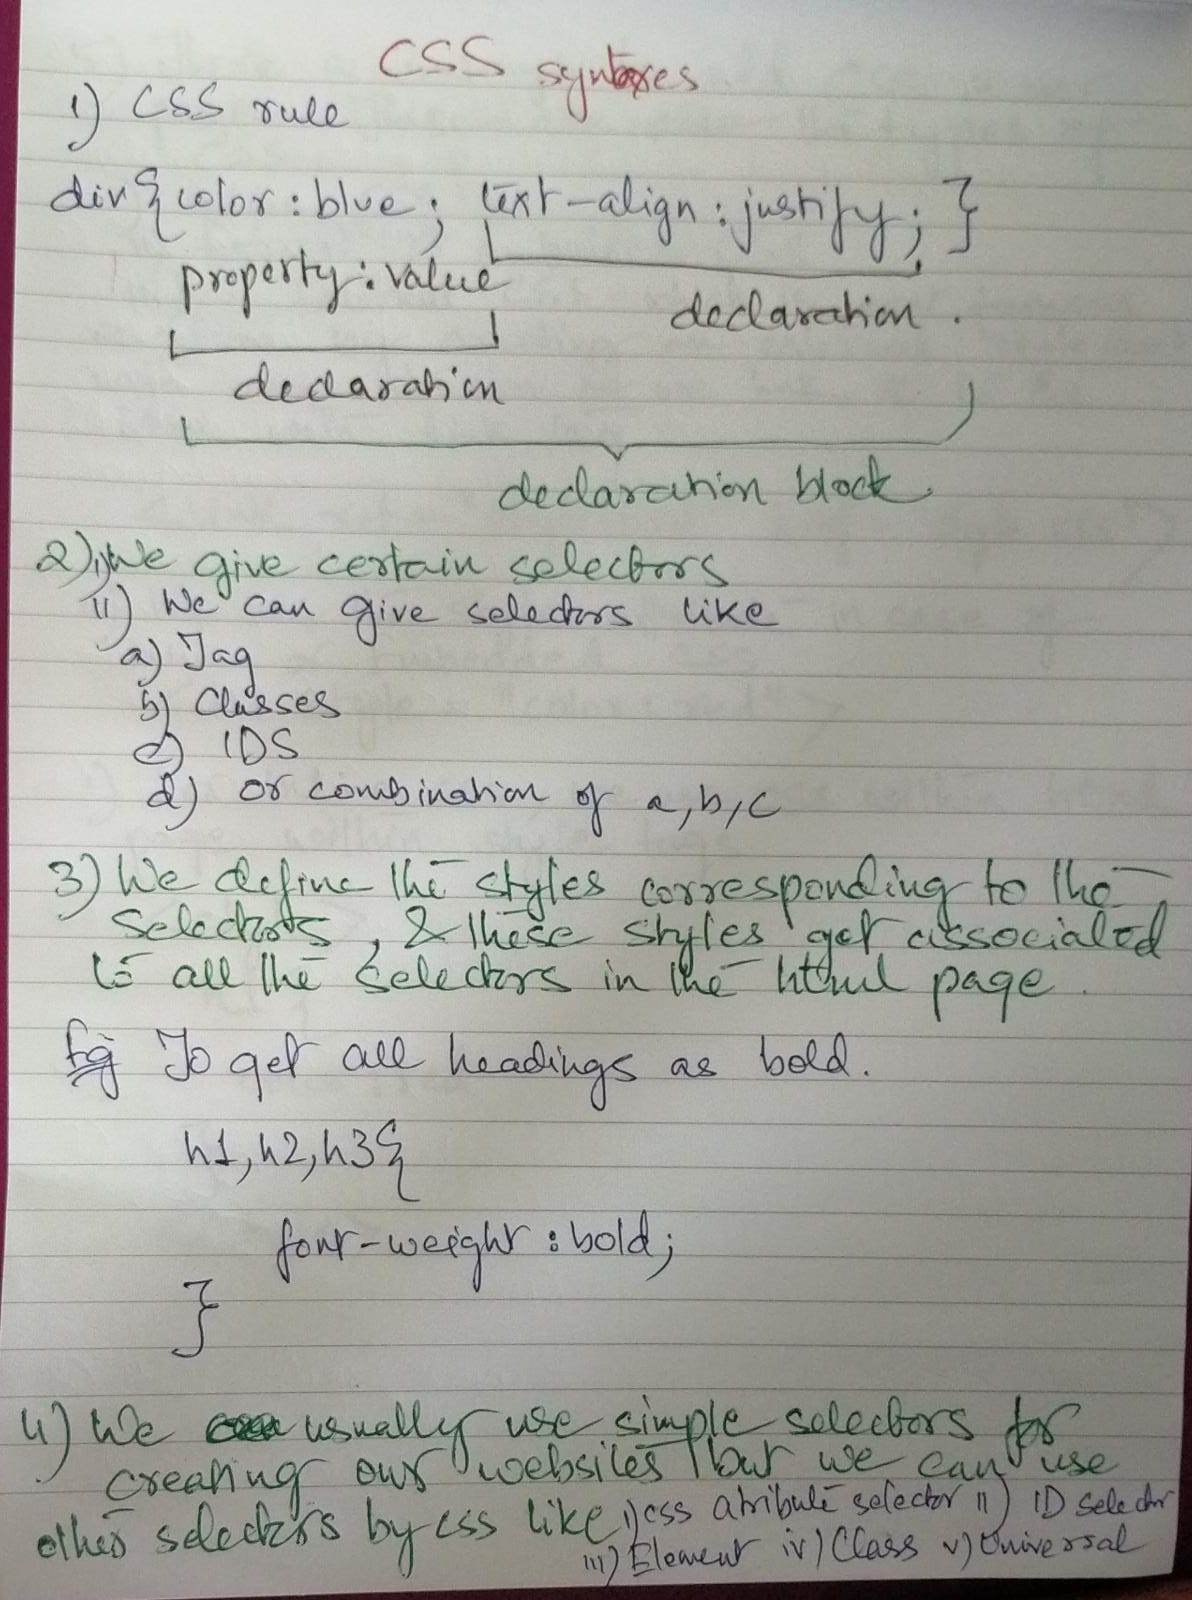 CSS syntaxes
1) CSS rule
div{color:blue; text-align:justify;}
property:value
declaration.
declaration
declaration block
2)i)We give certain selectors
ii) We can give selectors like
a) Tag
b) Classes
c) IDS
d) or combination of a,b,c
3) We define the styles corresponding to the
selectors, & these styles get associated
to all the selectors in the html page.
Eg To get all headings as bold.
h1,h2,h3{
font-weight:bold;
}
4) We usually use simple selectors for
creating our websites but we can use
other selectors by css like i)css atribute selector ii) ID selector
iii) Element iv) Class v) Universal